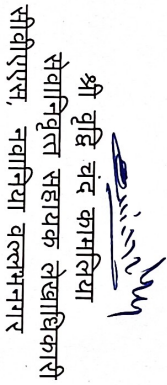 श्री वृद्धि चंद कामलिया
सेवानिवृत्त सहायक लेखाधिकारी
सीवीएएस, नवानिया वल्लभनगर